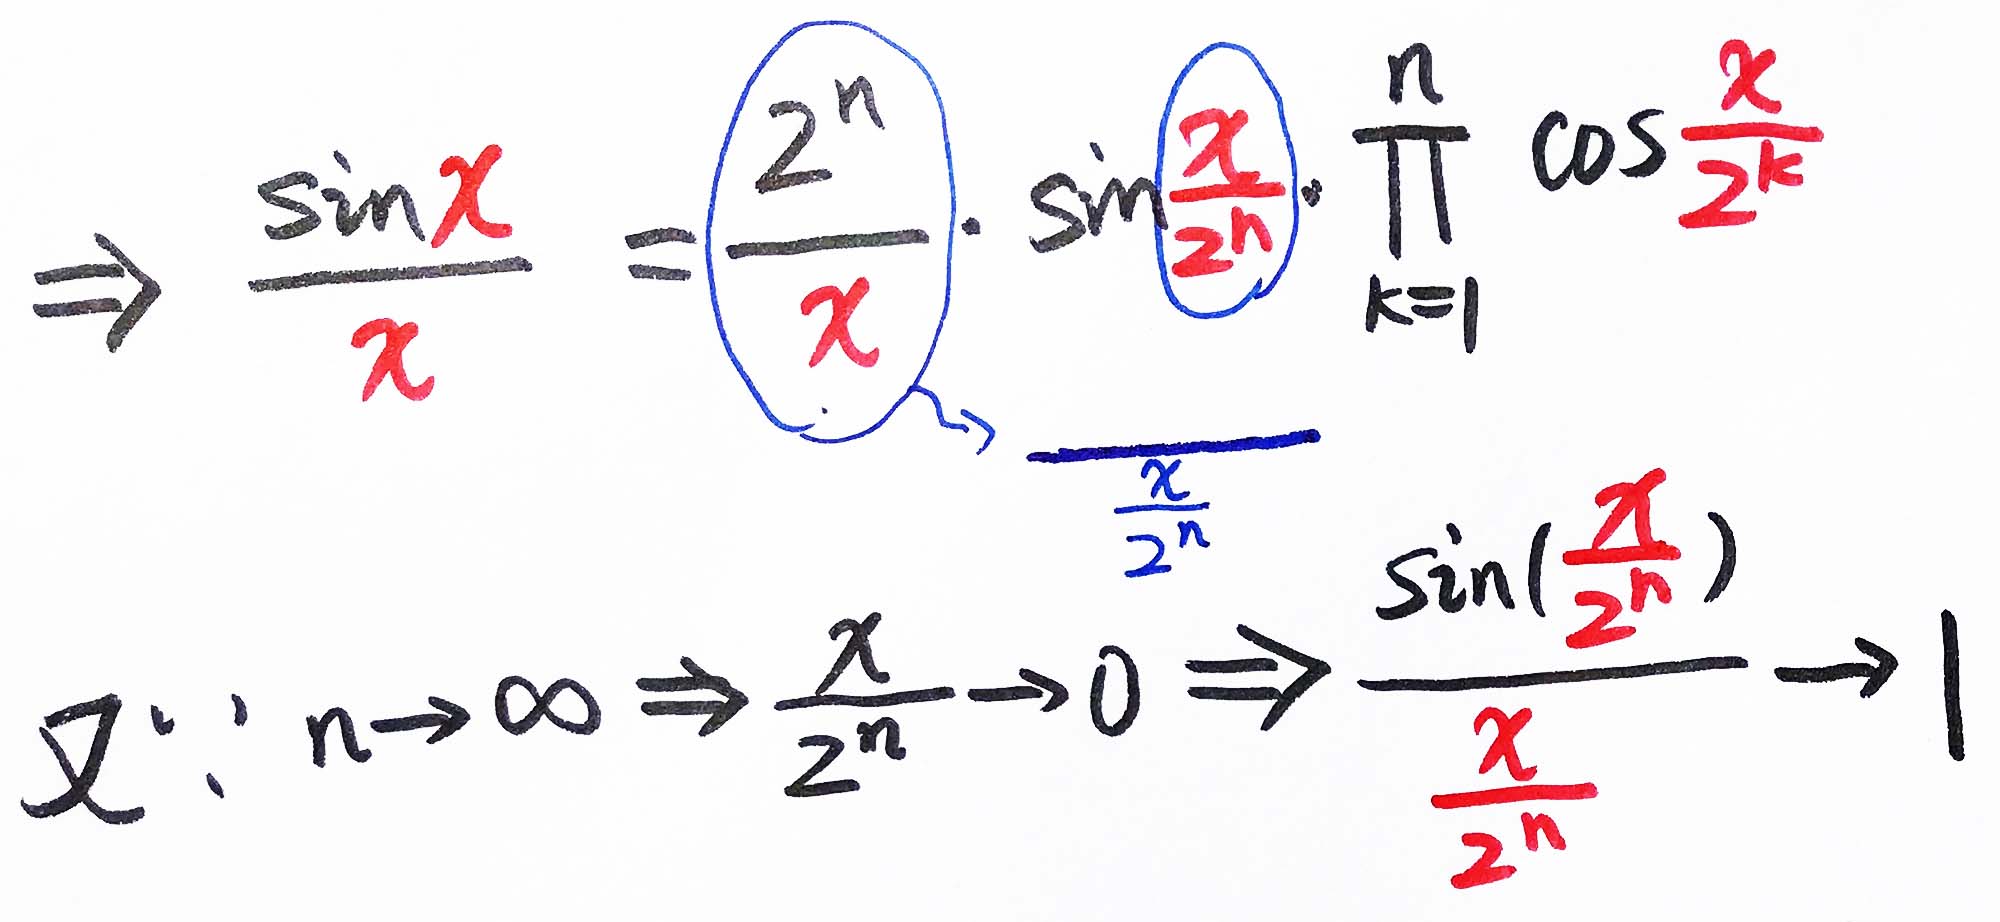 ⇒ \frac{sin x}{x} = \frac{2^n}{x} · sin \frac{x}{2^n} · \prod_{k=1}^{n} cos \frac{x}{2^k}
\frac{}{\frac{x}{2^n}}
又∵ n → ∞ ⇒ \frac{x}{2^n} → 0 ⇒ \frac{sin(\frac{x}{2^n})}{\frac{x}{2^n}} → 1